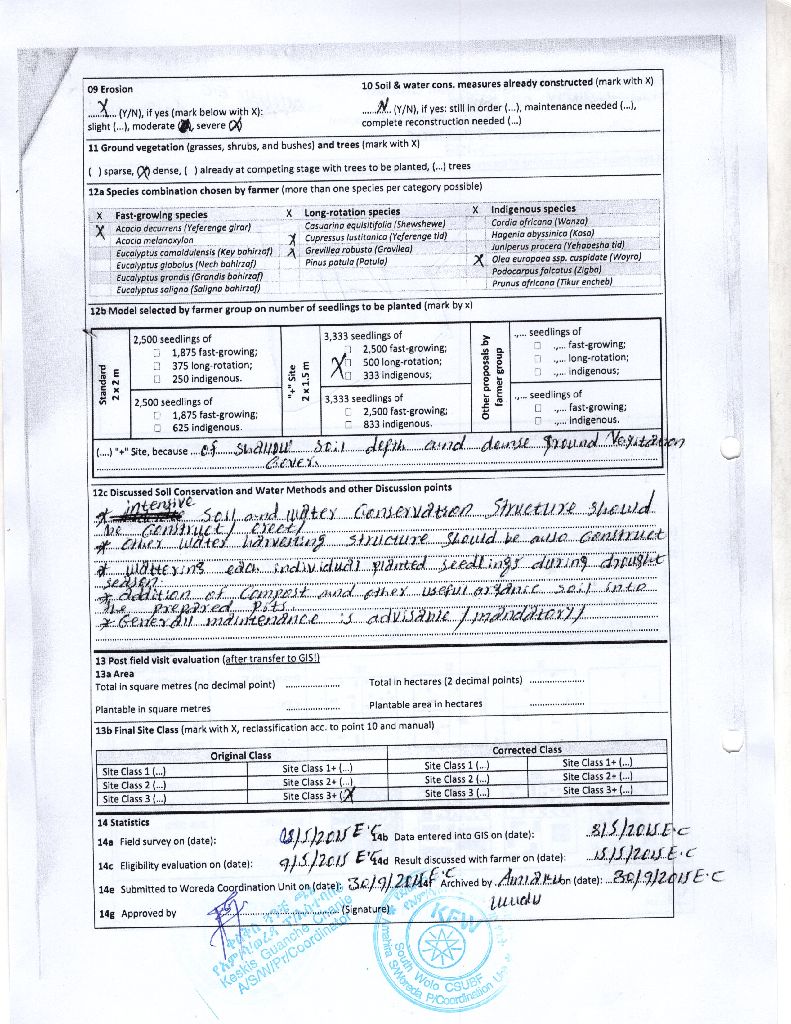 09 Erosion
10 Soil & water cons. measures already constructed (mark with X)
..X.... (Y/N), if yes (mark below with X):
slight (...), moderate (...), severe (X)
...N... (Y/N), if yes: still in order (...), maintenance needed (...),
complete reconstruction needed (...)
11 Ground vegetation (grasses, shrubs, and bushes) and trees (mark with X)
( ) sparse, (X) dense, ( ) already at competing stage with trees to be planted, (...) trees
12a Species combination chosen by farmer (more than one species per category possible)
X Fast-growing species
X Acacia decurrens (Yeferenge girar)
Acacia melanoxylon
Eucalyptus camaldulensis (Key bahirzaf)
Eucalyptus globolus (Nech bahirzaf)
Eucalyptus grandis (Grandis bahirzaf)
Eucalyptus saligna (Saligna bahirzaf)
X Long-rotation species
Casuarina equisitifolia (Shewshewe)
X Cupressus lustitanica (Yeferenge tid)
X Grevillea robusta (Gravilea)
Pinus patula (Patula)
X Indigenous species
Cordia africana (Wanza)
Hagenia abyssinica (Koso)
Juniperus procera (Yehabesha tid)
X Olea europaea ssp. cuspidate (Woyra)
Podocarpus falcatus (Zigba)
Prunus africana (Tikur encheb)
12b Model selected by farmer group on number of seedlings to be planted (mark by x)
Standard
2 x 2 m
2,500 seedlings of
1,875 fast-growing;
375 long-rotation;
250 indigenous.
2,500 seedlings of
1,875 fast-growing;
625 indigenous.
"+" Site
2 x 1.5 m
3,333 seedlings of
2,500 fast-growing;
X 500 long-rotation;
333 indigenous;
3,333 seedlings of
2,500 fast-growing;
833 indigenous.
Other proposals by
farmer group
.,... seedlings of
.,... fast-growing;
.,... long-rotation;
.,... indigenous;
.,... seedlings of
.,... fast-growing;
.,... indigenous.
(....) "+" Site, because ...of shallow soil depth and dense ground Vegitation
Cover.
12c Discussed Soil Conservation and Water Methods and other Discussion points
* intensive Soil and water Conservation Structure should
be Construct/ erect/
* Other water harvesting structure should be also Construct
* wattering each individual planted seedlings during drought
season.
* addition of compost and other useful organic soil into
the prepared Pits.
* Generall maintenance is advisable /mandatory/
13 Post field visit evaluation (after transfer to GIS!)
13a Area
Total in square metres (no decimal point) ..................
Total in hectares (2 decimal points) ..................
Plantable in square metres ..................
Plantable area in hectares ..................
13b Final Site Class (mark with X, reclassification acc. to point 10 and manual)
Original Class
Corrected Class
Site Class 1 (...) Site Class 1+ (...) Site Class 1 (...) Site Class 1+ (...)
Site Class 2 (...) Site Class 2+ (...) Site Class 2 (...) Site Class 2+ (...)
Site Class 3 (...) Site Class 3+ (X) Site Class 3 (...) Site Class 3+ (...)
14 Statistics
14a Field survey on (date): 08/5/2015 E'C
14b Data entered into GIS on (date): 8/5/2015 E.C
14c Eligibility evaluation on (date): 9/5/2015 E'C
14d Result discussed with farmer on (date): 15/5/2015 E.C
14e Submitted to Woreda Coordination Unit on (date): 30/9/2015 E'C
14f Archived by on (date): 30/9/2015 E'C
14g Approved by .................. (Signature)
Keskis Guanche Chanie
A/S/W/Pr/Coordinator
KFW
South Wolo CSUBF